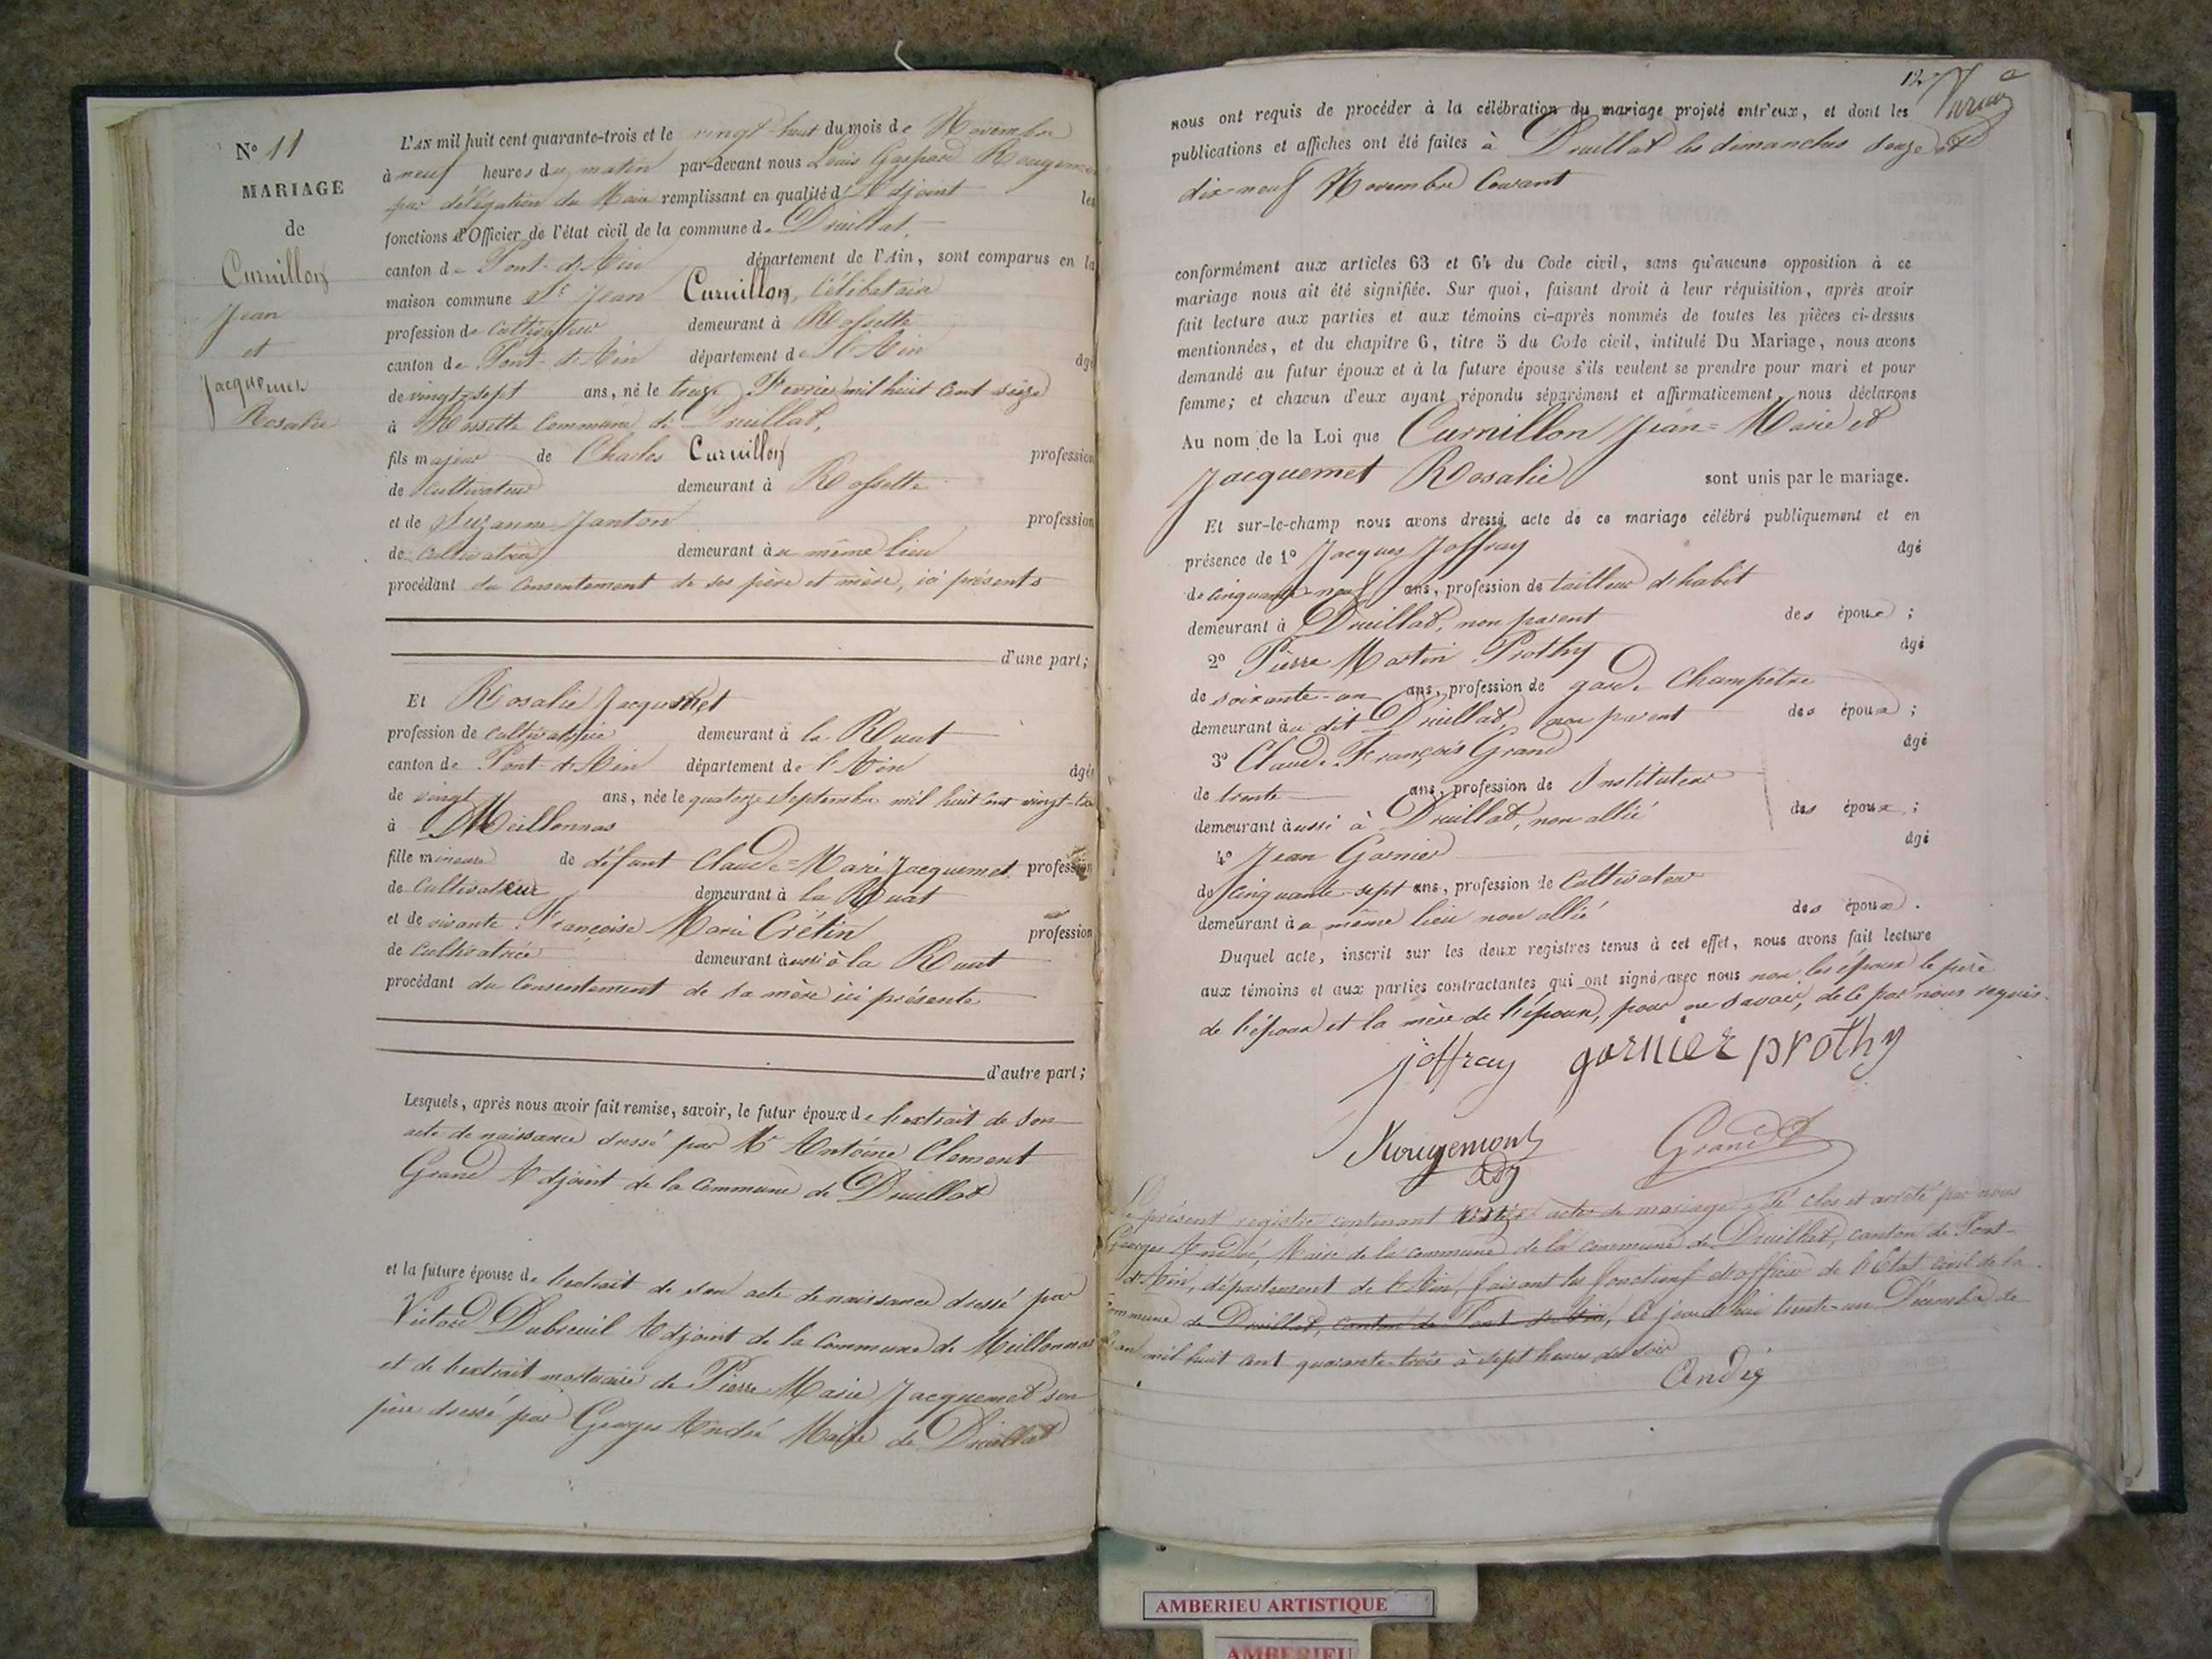 N° 11
MARIAGE
de
Curnillon
Jean
et
Jacquemet
Rosalie
L'AN mil huit cent quarante-trois et le vingt huit du mois de Novembre
à neuf heures du matin par-devant nous Louis Gaspard Rougemont
par délégation du Maire remplissant en qualité d'Adjoint les
fonctions d'Officier de l'état civil de la commune de Druillat,
canton de Pont-d'Ain département de l'Ain, sont comparus en la
maison commune Sr Jean Curnillon, Célibataire
profession de Cultivateur demeurant à Rossette
canton de Pont-d'Ain département de l'Ain âgé
de vingt-sept ans, né le treize Fevrier mil huit cent seize
à Rossette Commune de Druillat,
fils majeur de Charles Curnillon profession
de Cultivateur demeurant à Rossette
et de Suzanne Janton profession
de Cultivatrice demeurant au même lieu
procédant du Consentement de ses père et mère, ici présents
d'une part;
Et Rosalie Jacquemet
profession de Cultivatrice demeurant à la Ruat
canton de Pont-d'Ain département de l'Ain âgée
de vingt ans, née le quatorze Septembre mil huit cent vingt-trois
à Meillonnas
fille mineure de défunt Claude-Marie Jacquemet profession
de Cultivateur demeurant à la Ruat
et de vivante Françoise Marie Crétin profession
de Cultivatrice demeurant aussi à la Ruat
procédant du Consentement de sa mère ici présente
d'autre part;
Lesquels, après nous avoir fait remise, savoir, le futur époux de l'extrait de son
acte de naissance dressé par Mr Antoine Clement
Grand Adjoint de la Commune de Druillat
et la future épouse de l'extrait de son acte de naissance dressé par
Victor Dubreuil Adjoint de la Commune de Meillonnas
et de l'extrait mortuaire de Pierre Marie Jacquemet son
père dressé par Georges André Maire de Druillat
12
nous ont requis de procéder à la célébration du mariage projeté entr'eux, et dont les
publications et affiches ont été faites à Druillat les dimanches douze et
dix-neuf Novembre Courant
conformément aux articles 63 et 64 du Code civil, sans qu'aucune opposition à ce
mariage nous ait été signifiée. Sur quoi, faisant droit à leur réquisition, après avoir
fait lecture aux parties et aux témoins ci-après nommés de toutes les pièces ci-dessus
mentionnées, et du chapitre 6, titre 5 du Code civil, intitulé Du Mariage, nous avons
demandé au futur époux et à la future épouse s'ils veulent se prendre pour mari et pour
femme; et chacun d'eux ayant répondu séparément et affirmativement, nous déclarons
Au nom de la Loi que Curnillon Jean-Marie et
Jacquemet Rosalie sont unis par le mariage.
Et sur-le-champ nous avons dressé acte de ce mariage célébré publiquement et en
présence de 1° Jacques Joffray âgé
de cinquante-neuf ans, profession de tailleur d'habit
demeurant à Druillat, non parent des époux;
2° Pierre Martin Prothy âgé
de soixante-un ans, profession de garde Champêtre
demeurant au dit Druillat, non parent des époux;
3° Claude François Grand âgé
de trente ans, profession de Instituteur
demeurant aussi à Druillat, non allié des époux;
4° Jean Garnier âgé
de Cinquante-sept ans, profession de Cultivateur
demeurant au même lieu non allié des époux.
Duquel acte, inscrit sur les deux registres tenus à cet effet, nous avons fait lecture
aux témoins et aux parties contractantes qui ont signé avec nous non les époux le père
de l'époux et la mère de l'épouse, pour ne savoir, de ce par nous requis.
joffray garnier prothy
Rougemont Grand
Adj
Le présent registre contenant onze actes de mariage a été clos et arrêté par nous
Georges André, Maire de la commune de la commune de Druillat, canton de Pont-
d'Ain, département de l'Ain, faisant les fonctions d'officier de l'Etat civil de la
Commune de Druillat, canton de Pont-d'Ain, Ce jourd'hui trente-un Décembre de
l'an mil huit cent quarante-trois à sept heures du soir
André
AMBERIEU ARTISTIQUE
AMBERIEU